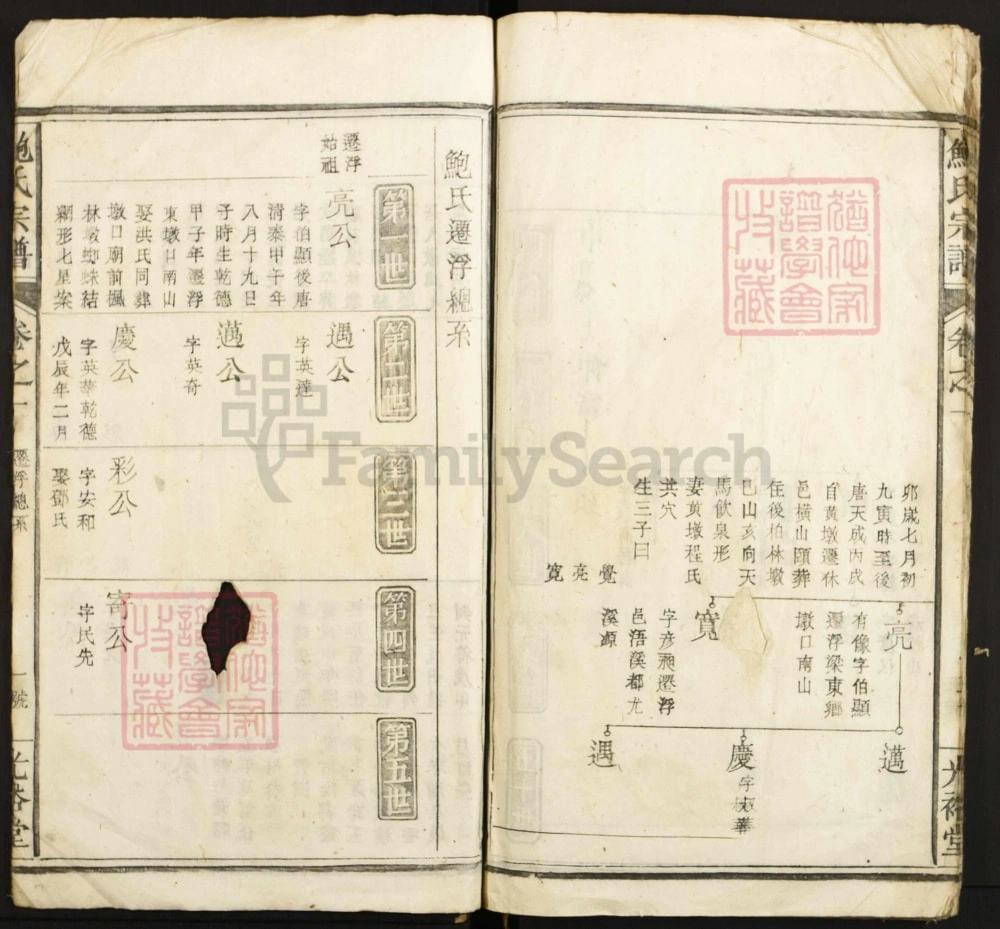 鮑氏宗譜
卷之一
光裕堂
卯歲七月初
九寅時至後
唐天成丙戌
自黄墩遷休
邑横山頤葬
住後柏林墩
巳山亥向天
馬飲泉形
妻黄墩程氏
共穴
生三子曰
覺
亮
寛
亮
有像字伯顯
遷浮梁東鄉
墩口南山
寛
字彦昶遷浮
邑浯溪都尤
溪源
邁
慶
字英華
遇
鮑氏遷浮總系
第一世
第二世
第三世
第四世
第五世
遷浮
始祖
亮公
字伯顯後唐
清泰甲午年
八月十九日
子時生乾德
甲子年遷浮
東墩口南山
娶洪氏同葬
墩口廟前楓
林墩蜘蛛結
網形七星案
遇公
字英達
邁公
字英奇
慶公
字英華乾德
戊辰年二月
彩公
字安和
娶鄧氏
寄公
字民先
鮑氏宗譜
卷之一
遷浮總系
一號
光裕堂
猶他家
譜學會
收藏
猶他家
譜學會
收藏
FamilySearch